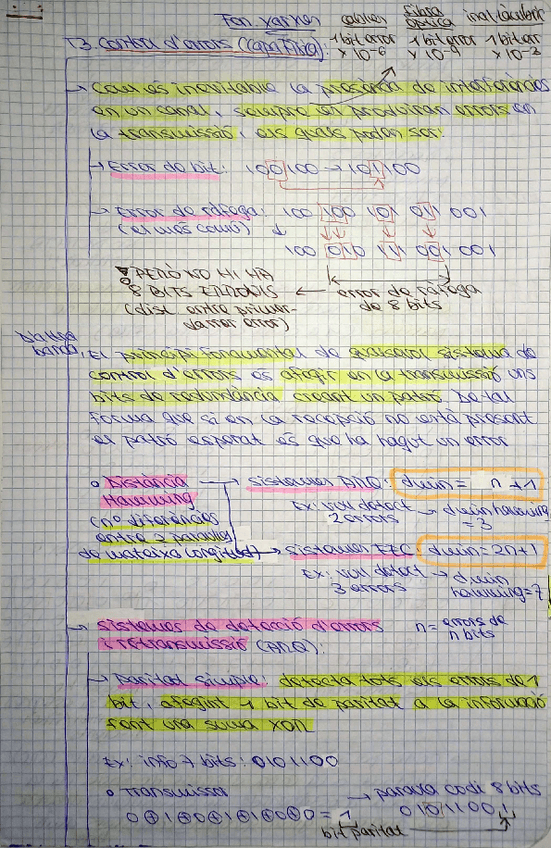 Fon. xarxes
cables
fibra òptica
inalàmbric
T3. Control d'errors (capa física):
1 bit error x 10⁻⁶
1 bit error x 10⁻⁹
1 bit err x 10⁻³
→ Com és inevitable la presència de interferències
en un canal, sempre es produiran errors en
la transmissió, els quals poden ser:
→ Error de bit: 100100 → 101100
→ Error de ràfega: 100 100 101 011 001
(el més comú) ↓
100 010 111 001 001
PERÒ NO HI HA ← error de ràfega
8 BITS ERRONIS de 8 bits
(dist entre primer-
darrer error)
D'altra
banda, El principi fonamental de qualsevol sistema de
control d'errors és afegir en la transmissió uns
bits de redundància creant un patró. De tal
forma que si en la recepció no està present
el patró esperat és que ha hagut un error
• Distància → sistemes ARQ: dmin = n + 1
Hamming
Ex: vull detect → dmin hamming
2 errors = 3
(nº diferències
entre 2 paraules
de mateixa longitud) → sistemes FEC: dmin = 2n+1
Ex: vull detect → dmin
3 errors hamming = 7
→ sistemes de detecció d'errors n = errors de
i retransmissió (ARQ): n bits
→ Paritat simple: detecta tots els errors de 1
bit, afegint 1 bit de paritat a la informació
fent una suma XOR
Ex: info 7 bits: 0101100
• Transmissor → paraula codi 8 bits
0⊕1⊕0⊕1⊕1⊕0⊕0 = 1 01011001
bit paritat